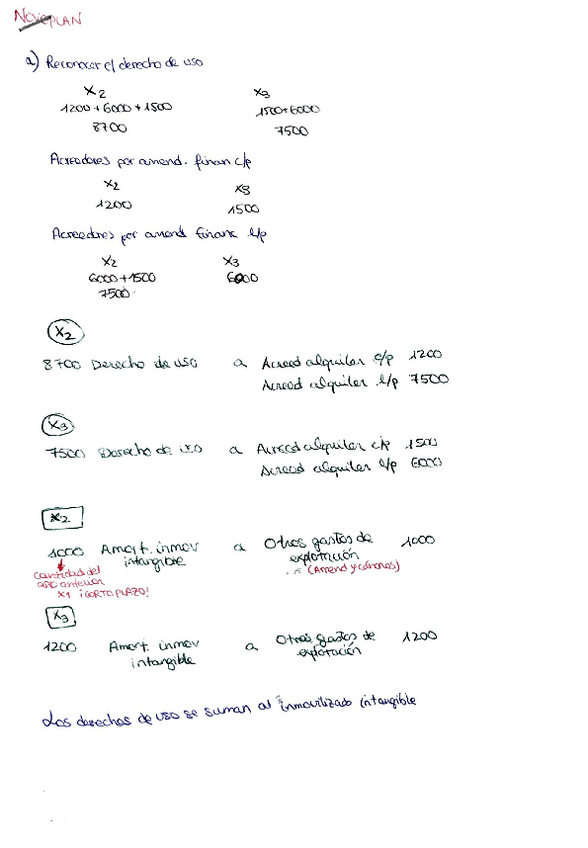 NOVOPLAN
a) Reconocer el derecho de uso
X2 X3
1200 + 6000 + 1500 1500+6000
8700 7500
Acreedores por arrend. finan c/p
X2 X3
1200 1500
Acreedores por arrend finank l/p
X2 X3
6000+1500 6000
7500
X2
8700 Derecho de uso a Acreed alquiler c/p 1200
Acreed alquiler l/p 7500
X3
7500 Derecho de uso a Acreed alquiler c/p 1500
Acreed alquiler l/p 6000
X2
1000 Amort. inmov a Otros gastos de 1000
intangible explotación
(Arrend y cánones)
cantidad del
anterior
X1 ¡CORTO PLAZO!
X3
1200 Amort. inmov a Otros gastos de 1200
intangible explotación
Los derechos de uso se suman al inmovilizado intangible